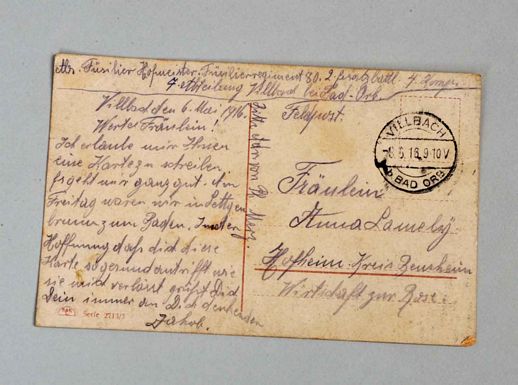 Abs. Füsilier Hofmeister. Füsilierregiment 80. 2. Ersatzbattl. 4. Komp.
7. Abteilung Villbach bei Bad-Orb.
Villbach den 6. Mai 1916.
Wertes Fräulein!
Ich erlaube mir Ihnen
eine Karte zu schreiben
es geht mir ganz gut. Am
Freitag waren wir in Lettgen
brunn zum Baden. In der
Hoffnung daß dich diese
Karte so gesund antrifft wie
sie mich verläst grüßt Dich
Dein immer an Dich denkenden
Jakob.
Serie 221
Feldpost.
VILLBACH
6.16.9-10V
BAD ORB
Fräulein
Anna
Hofheim Kreis Bensheim
Wirtschaft zur Rose